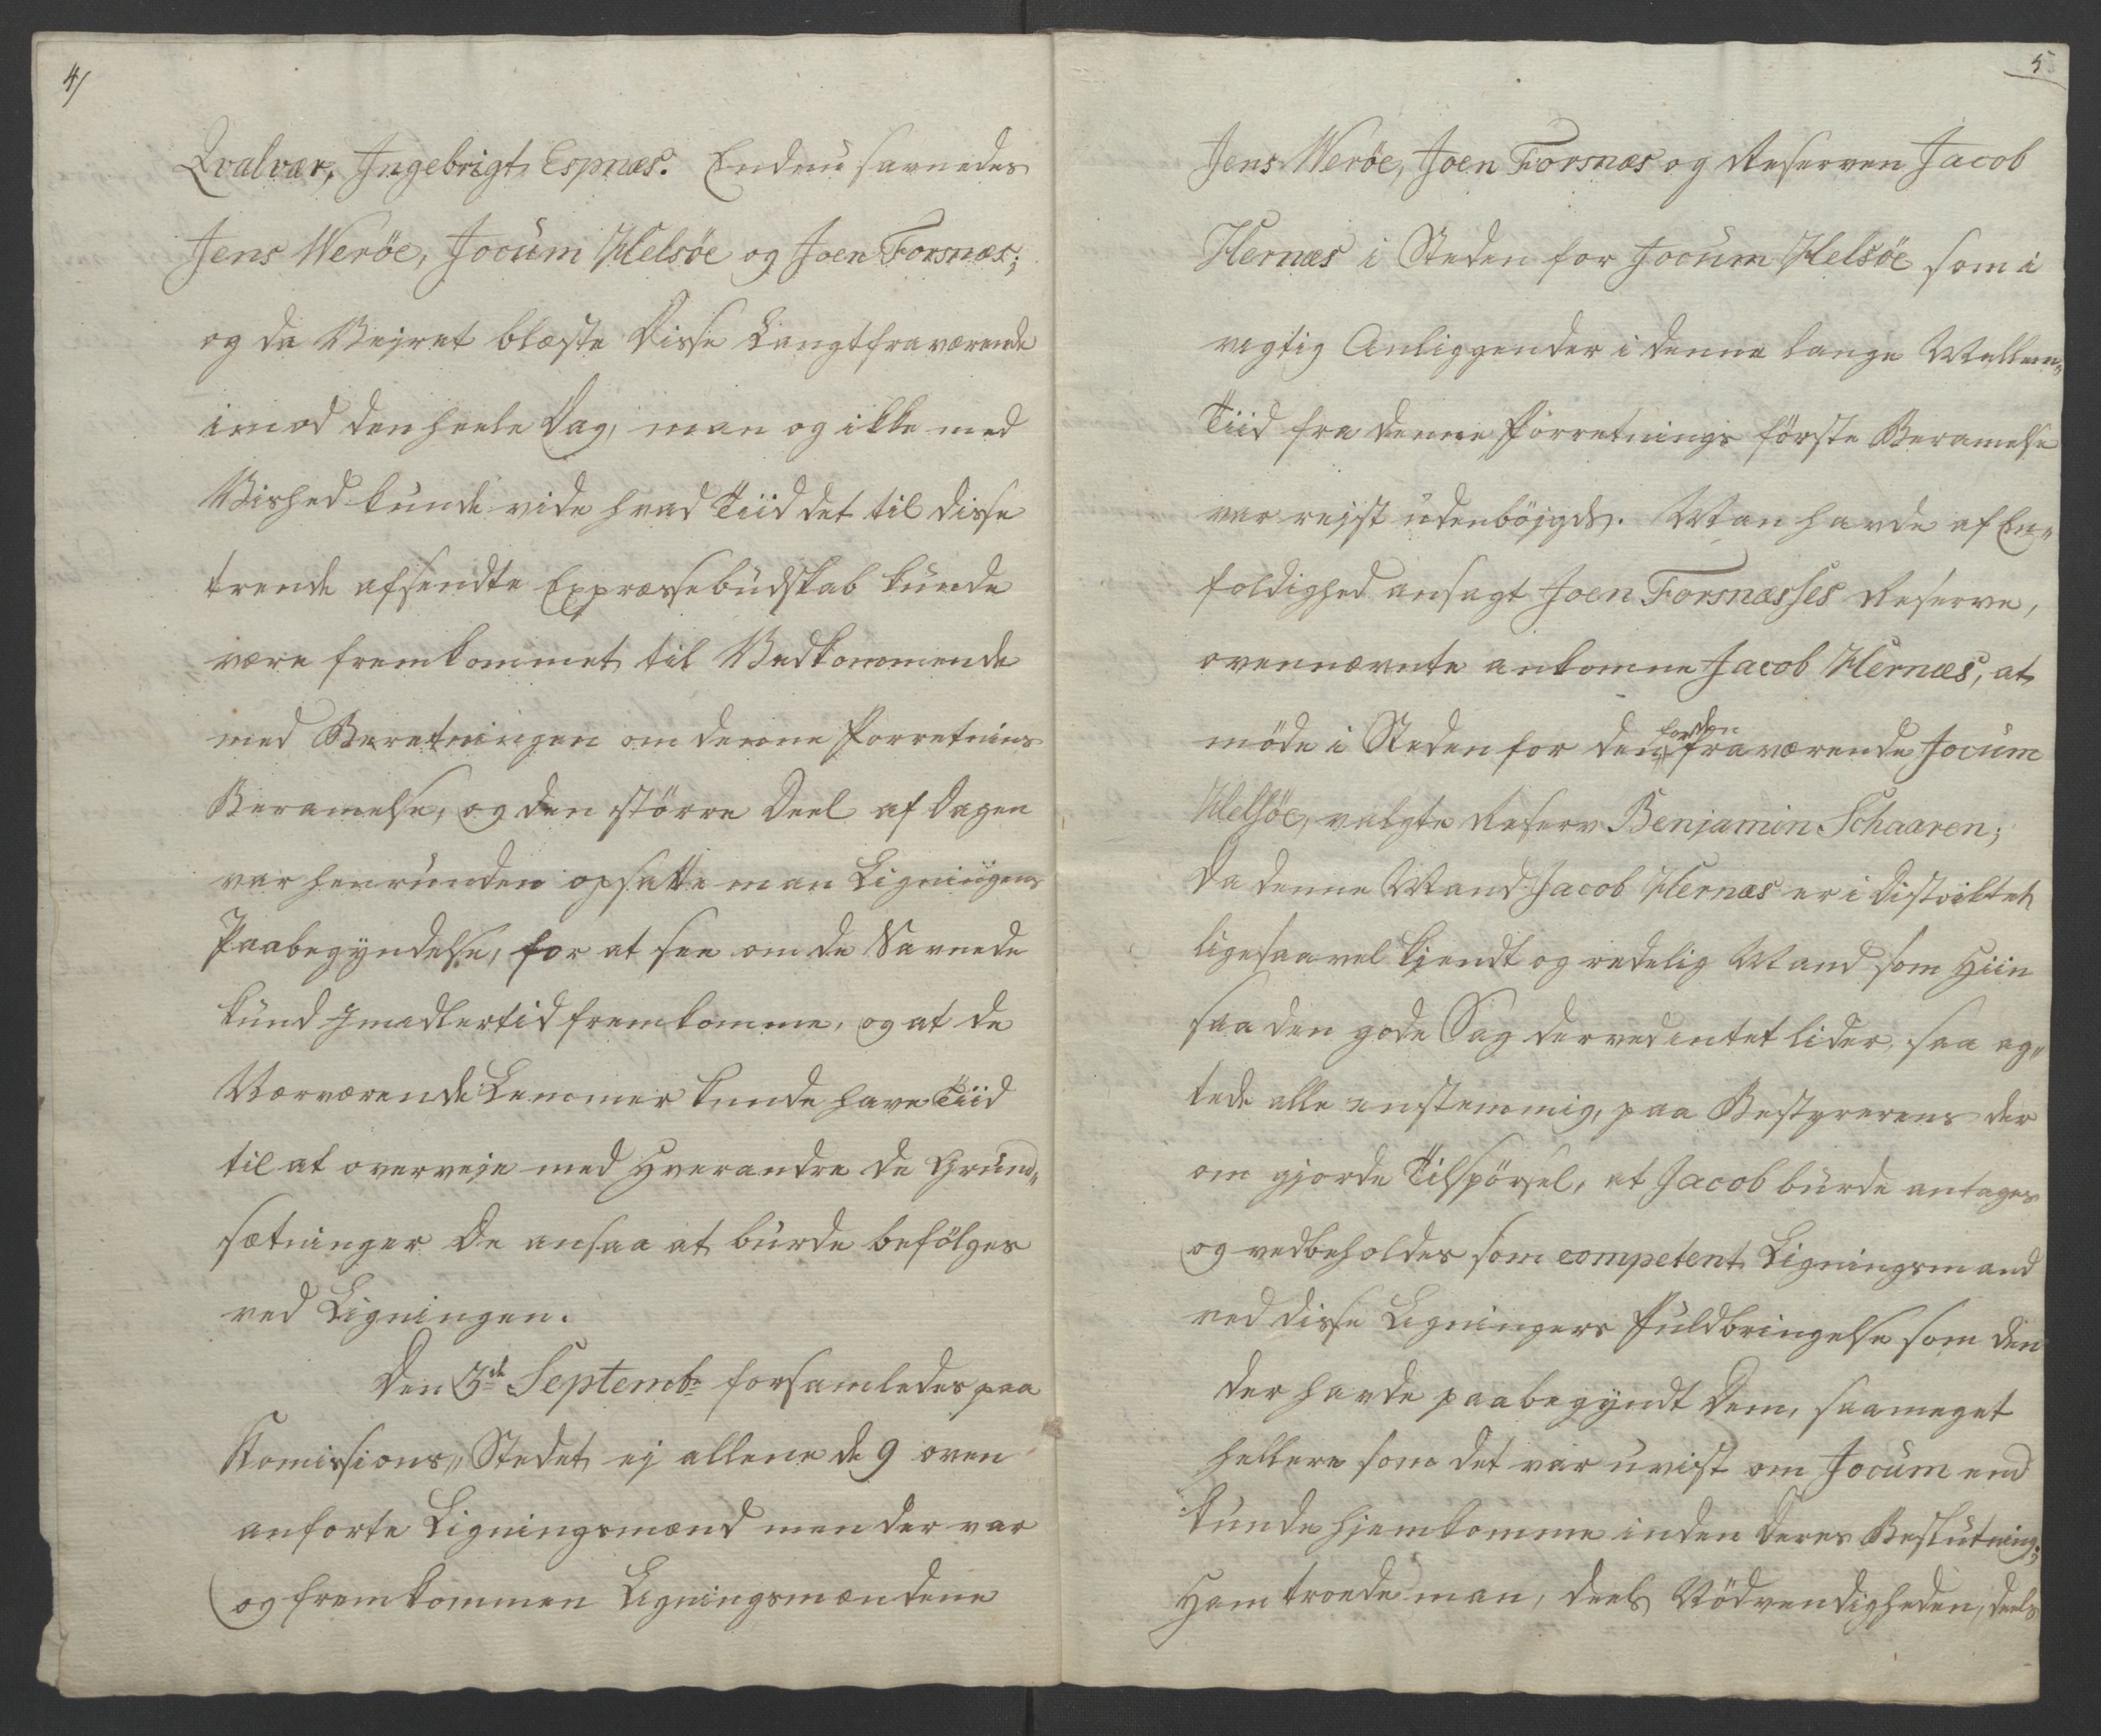 4/
Qvalvær, Ingebrigt Espnæs. Endnu savnedes
Jens Werøe, Jocum Helsøe og Joen Forsnæs;
og da Vejret blæste Disse Langtfraværende
imod den heele Dag, man og ikke med
Vished kunde vide hvad Tiid det til disse
trende afsendte Expressebudskab kunde
være fremkommet til Vedkommende
med Beretningen om denne Forretnins
Berammelse, og den større Deel af Dagen
var henrunden opsatte man Ligningens
Paabegyndelse, for at see om de Savnede
kund Imedlertid fremkomme, og at de
Nærværende Lemmer kunde have Tiid
til at overveje med Hverandre de Grund„
sætninger De ansaa at burde befølges
ved Ligningen.
Den 3de Septembr forsamledes paa
Komissions„Stedet ej allene de 9 oven
anførte Ligningsmænd men der var
og fremkommen Ligningsmændene
5
Jens Werøe, Joen Forsnæs og Reserven Jacob
Hernæs i Steden for Jocum Helsøe som i
vigtig Anliggender i denne lange Mellem„
Tiid fra denne Forretnings første Berammelse
var rejst udenbøjgds. Man havde af En„
foldighed ansagt Joen Forsnæsses Reserve,
ovennævnte ankomne Jacob Hernæs, at
møde i Steden for den forden fraværende Jocum
Helsøe, valgte Reserv Benjamin Schaaren;
Da denne Mand Jacob Hernæs er i Distriktet
ligesaavel kjendt og redelig Mand som Hiin
saa den gode Sag derved intet lider, saa ag„
tede alle enstemmig, paa Bestyrerens der
om gjorde Tilspørsel, at Jacob burde antages
og vedbeholdes som competent Ligningsmand
ved disse Ligningers Fuldbringelse som den
der havde paabegyndt Dem, saameget
hellere som det var uvist om Jocum end
kunde hjemkomme inden Deres Beslutning;
Ham troede man, deels Nødvendigheden, deels